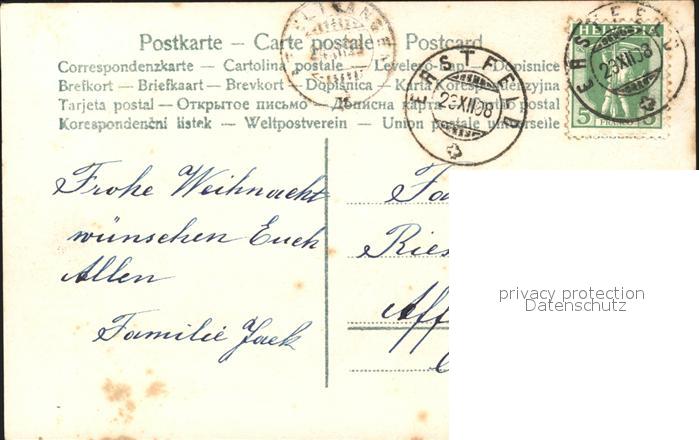 Postkarte – Carte postale – Postcard
Correspondenzkarte – Cartolina postale – Levelező-Lap – Dopisnice
Brefkort – Briefkaart – Brevkort – Dopisnica – Karta Korespondencyjna
Tarjeta postal – Открытое письмо – Дописна карта – postal
Korespondenční listek – Weltpostverein – Union postale universelle
HELVETIA
5 FRANCO 5
ERSTFELD
23XII08
ERSTFELD
23XII08
Frohe Weihnacht
wünschen Euch
Allen
Familie Jack
Fa
Ries
Aff
privacy protection
Datenschutz